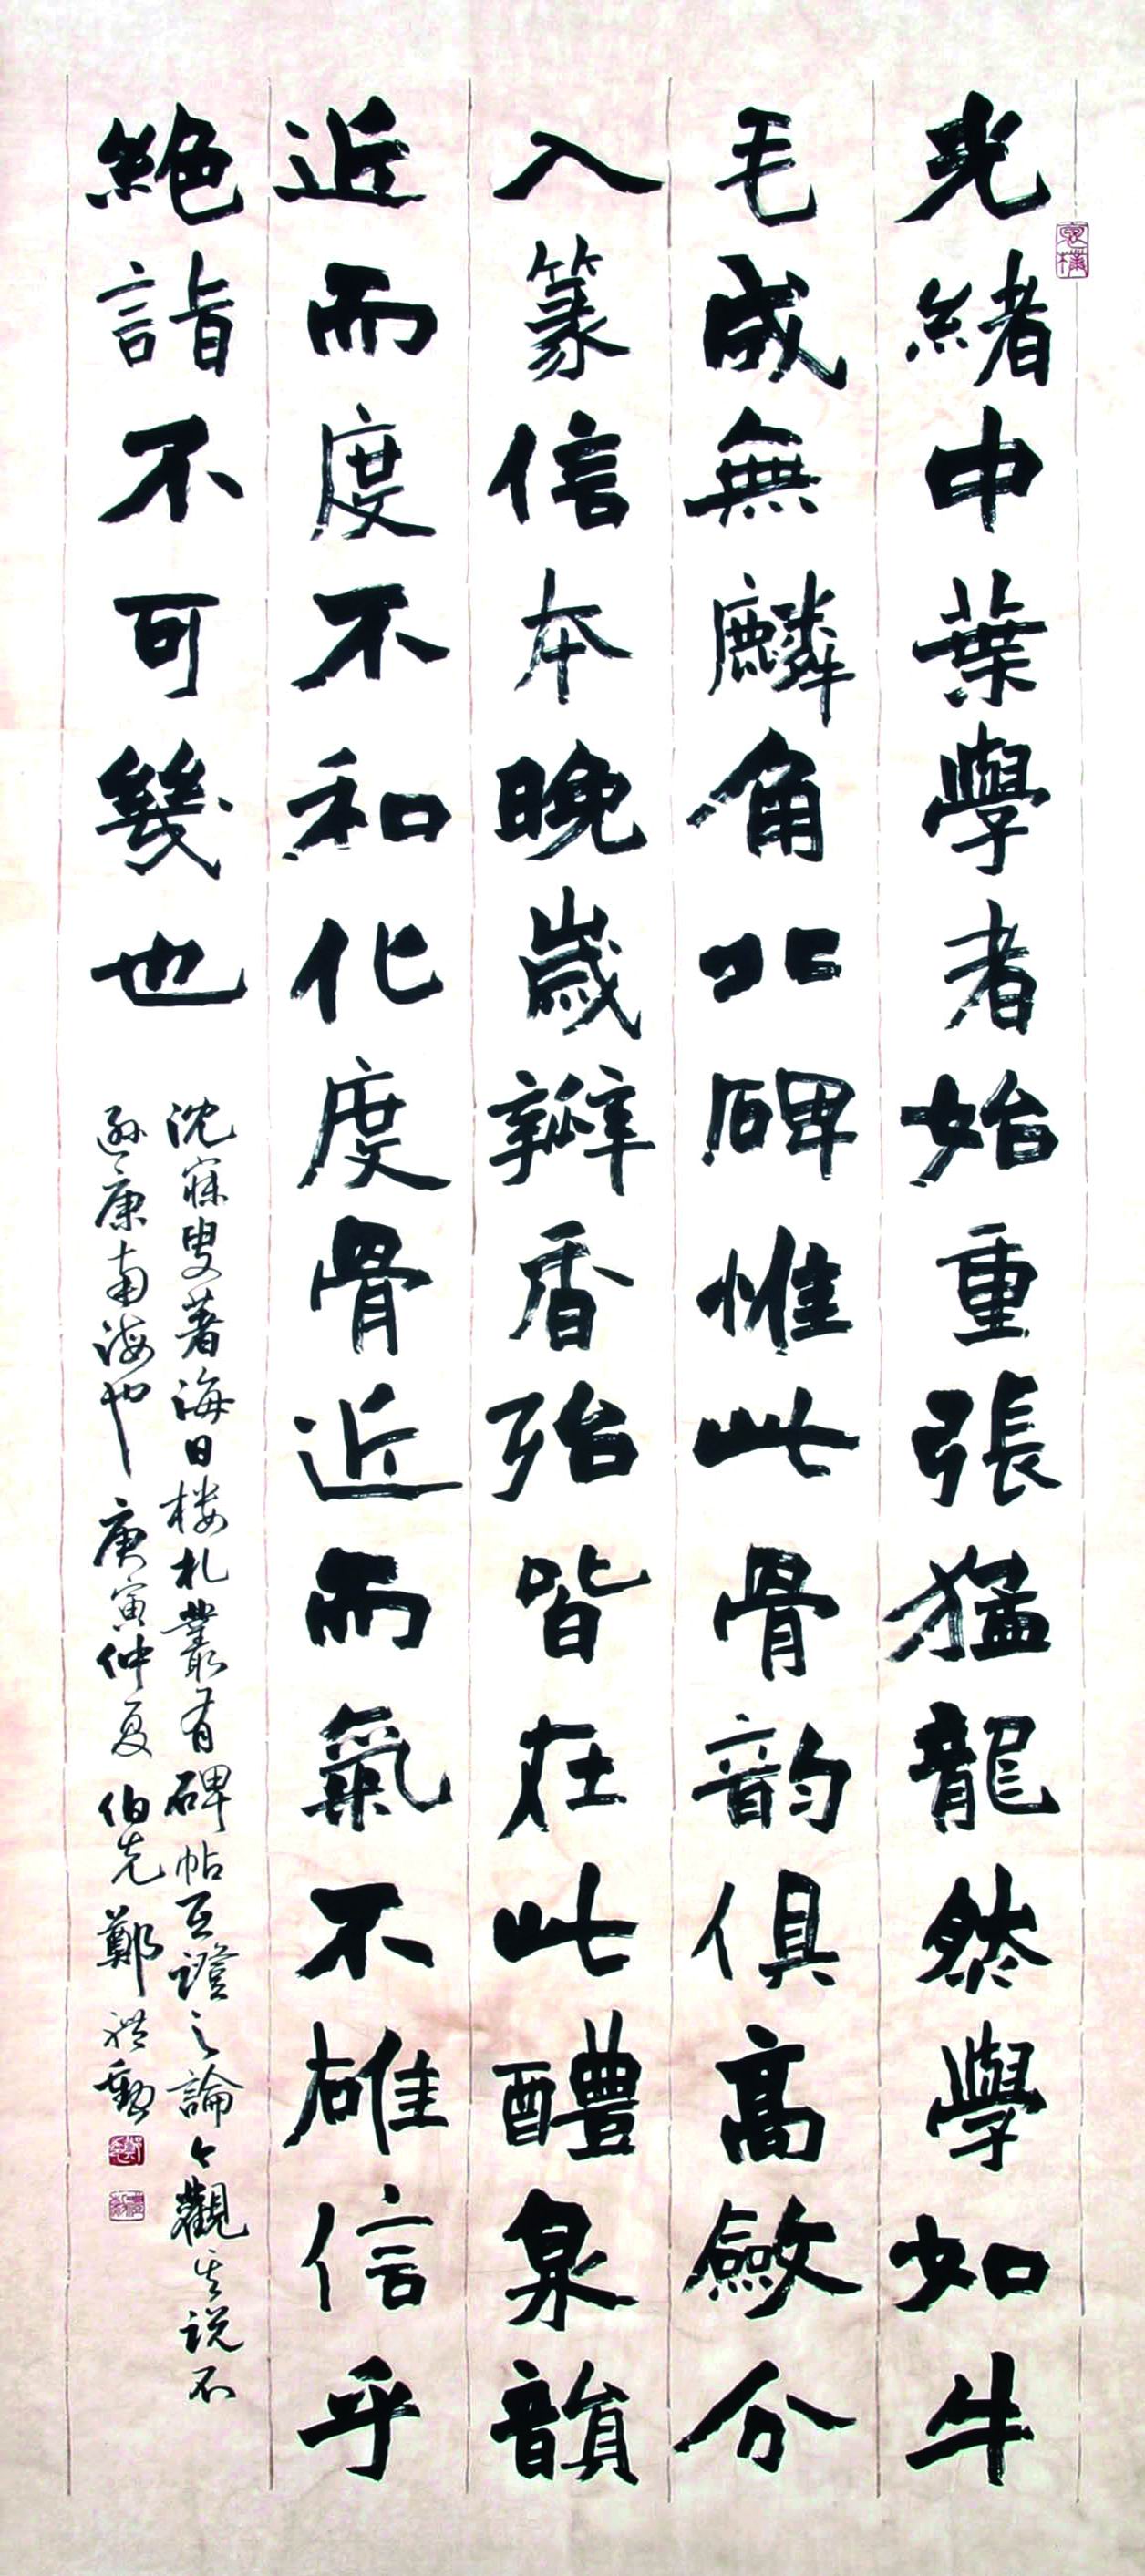 光緒中葉學者始重張猛龍然學如牛
毛成無麟角北碑惟此骨韵俱高斂分
入篆信本晚歲瓣香殆皆在此醴泉韻
近而度不和化度骨近而氣不雄信乎
絶詣不可幾也
沈寐叟著海日楼札叢有碑帖互證之論今觀其说不
遜康南海也庚寅仲夏伯先鄭禮勳